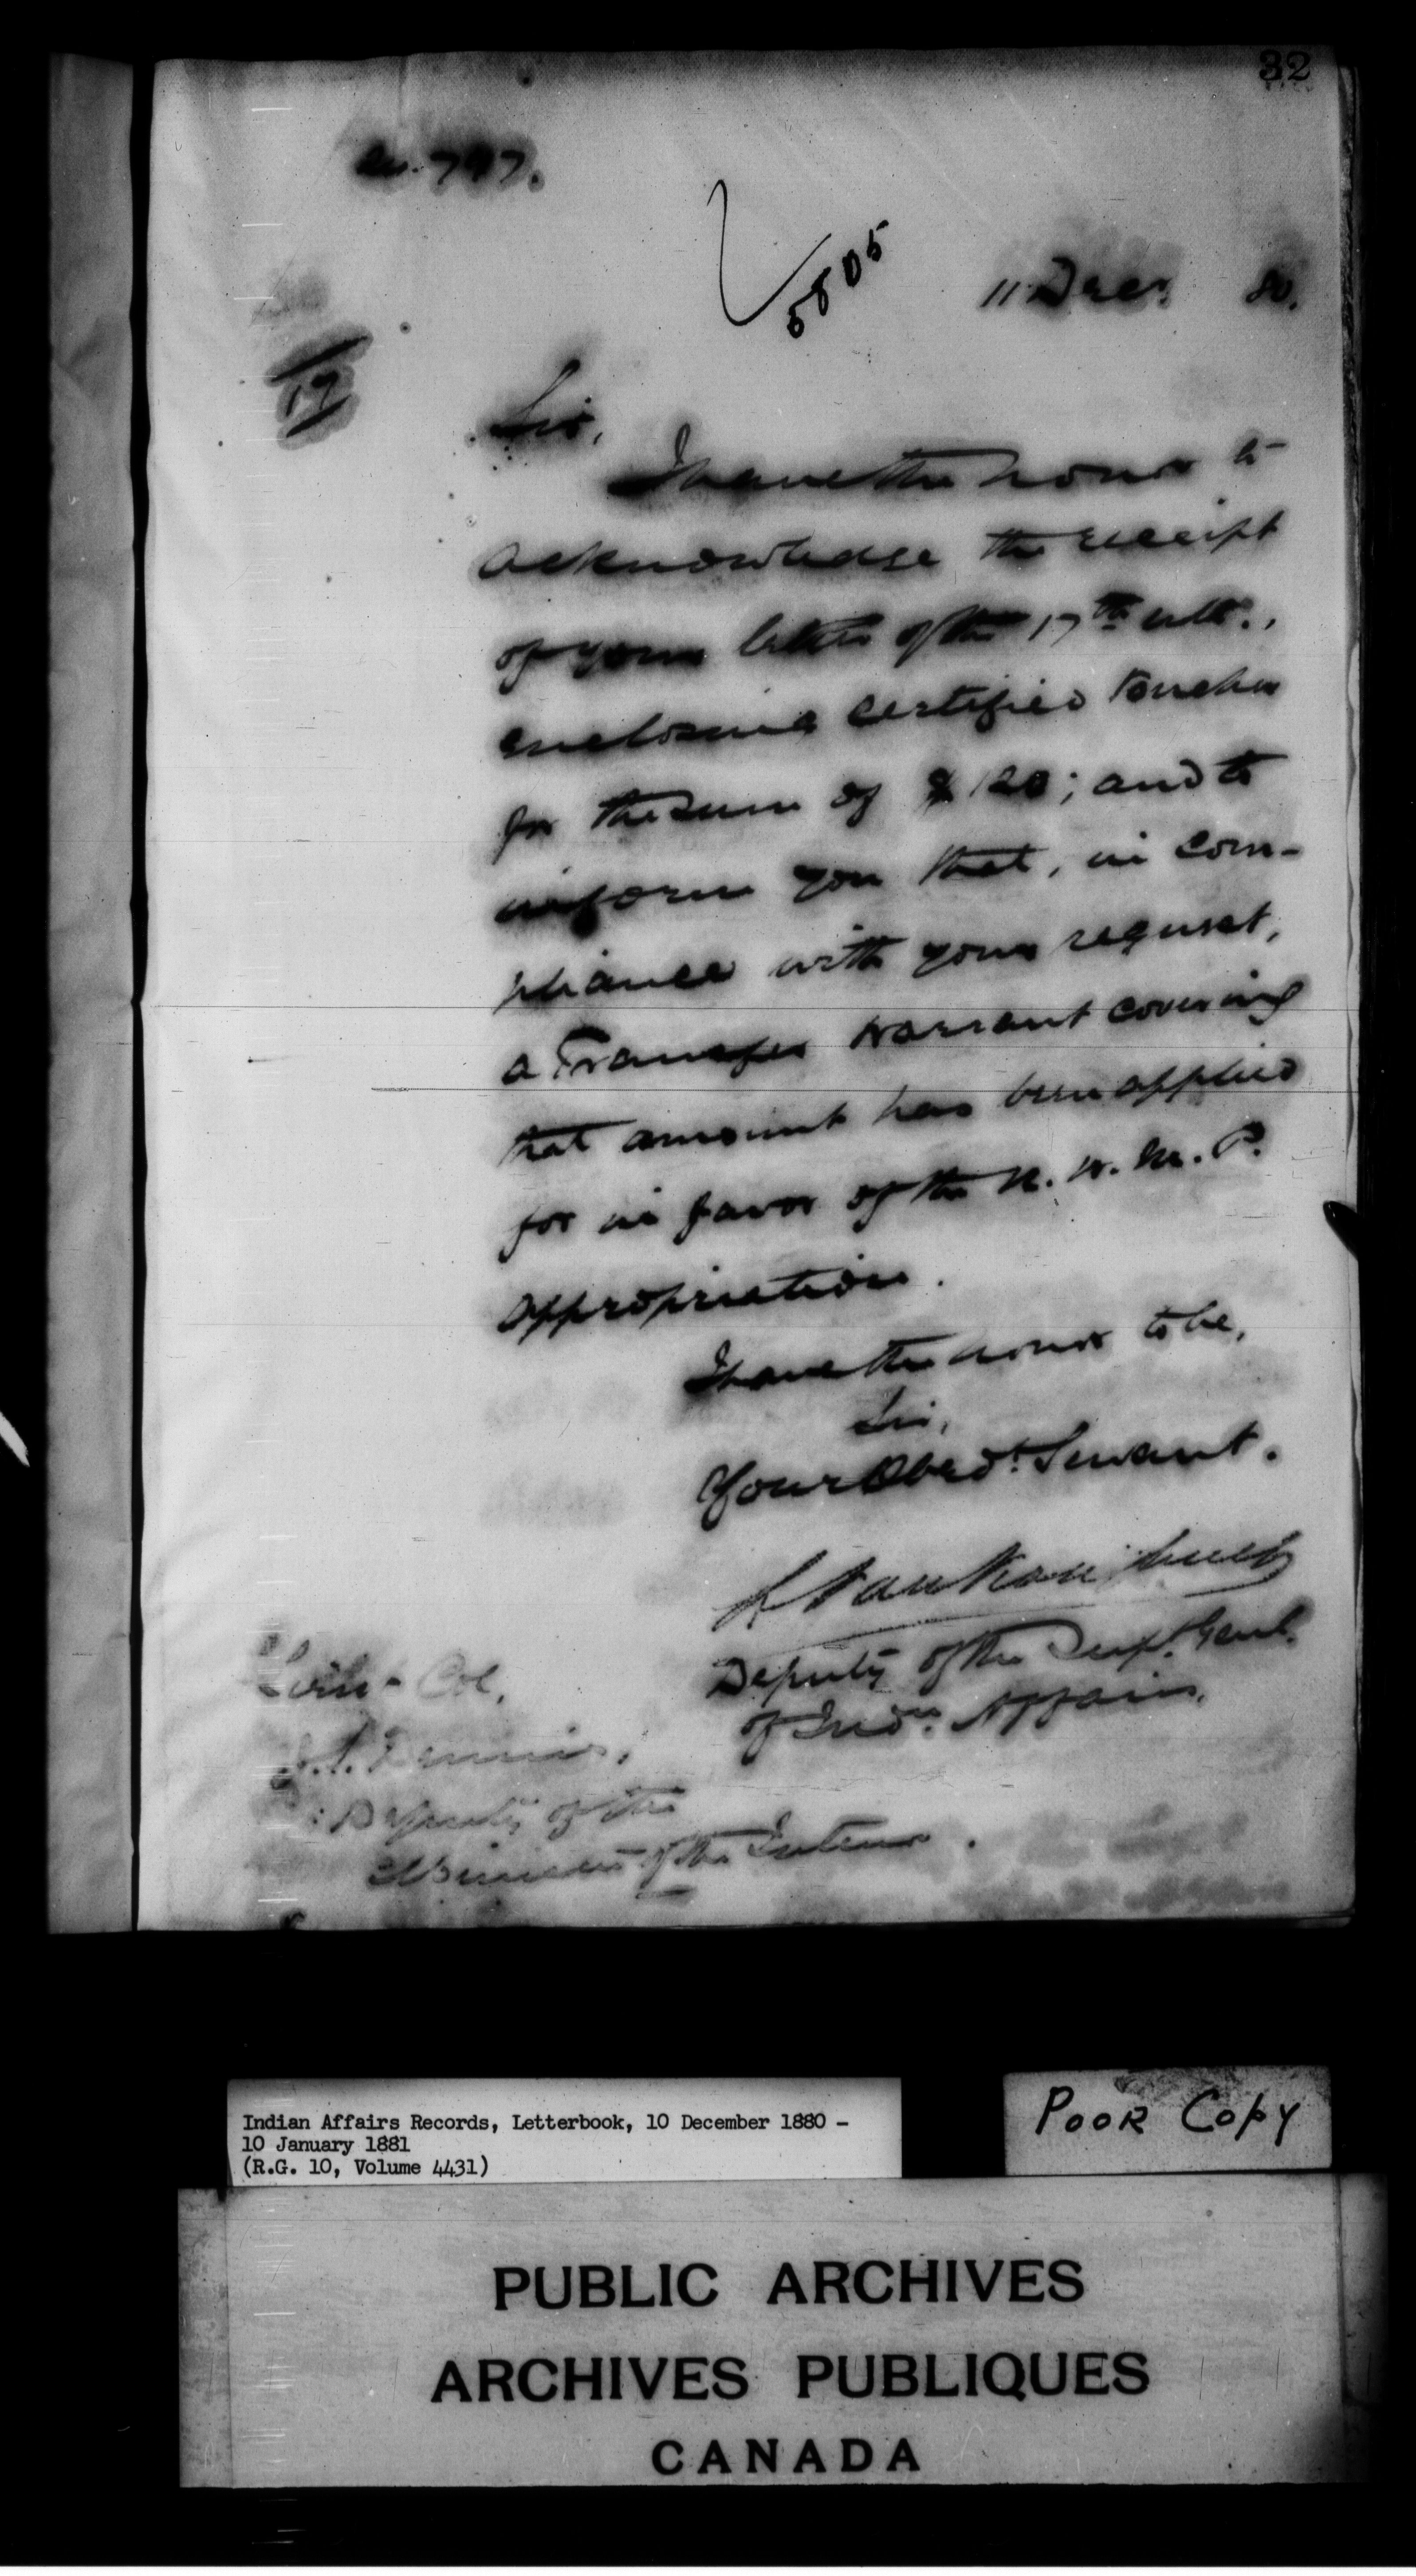 32
797.
5805
11 Decr. 80.
17
Sir,
I have the honor to
acknowledge the receipt
of your letter of the 17th ulto.,
enclosing certified voucher
for the sum of $120; and to
inform you that, in com-
pliance with your request,
a Transfer warrant covering
that amount has been applied
for in favor of the N. W. M. P.
appropriation.
I have the honor to be,
Sir,
Your Obedt. Servant.
L VanKoughnet
Deputy of the Supt. Genl.
of Indn. Affairs.
Lieut-Col.
J. S. Dennis,
Deputy of the
Minister of the Interior.
Indian Affairs Records, Letterbook, 10 December 1880 -
10 January 1881
(R.G. 10, Volume 4431)
POOR COPY
PUBLIC ARCHIVES
ARCHIVES PUBLIQUES
CANADA